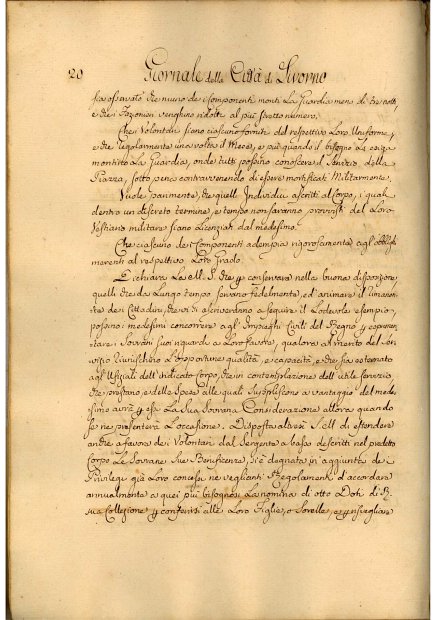 20 Giornale della Città di Livorno
sia osservato che niuno de' Componenti monti La Guardia meno di tre notti,
e che i Fazionieri venghino ridotti al più stretto numero.
Che i Volontarj siano ciascuno forniti del respettivo Loro Uniforme,
e che regolarmente una volta il Mese, e più quando il bisogno Lo esiga
montino La Guardia, onde tutti possino conoscere il Servizio della
Piazza, sotto pena contravvenendo di essere mortificati Militarmente.
Vuole parimente, che quelli Individui ascritti al Corpo, i quali
dentro un discreto termine, e tempo non saranno provvisti del Loro
Vestiario militare siano Licenziati dal medesimo.
Che ciascuno de' Componenti adempia rigorosamente agl'
al respettivo Loro Grado.
Dichiara La M. S. che conservare nella buona disposizione
quelli che da Lungo tempo servano fedelmente, ed animare il rimanente
de' Cittadini, che vi si ascriveranno a seguire il Lodevole esempio,
possino i medesimi concorrere agl' Impieghi Civili del Regno
i Sovrani suoi riguardi a Loro favore, qualora al merito del Servizio
L'opportune qualità, e capacità, e che sia esternato
agl' Uffiziali dell' indicato Corpo, che in contemplazione dell' utile servizio
che prestano, e delle Spese alle quali Suppliscono a vantaggio del medesimo
avrà p. essi La Sua Sovrana Considerazione allora quando
se ne presenterà L'occasione. Disposta altresì S. M. di estendere
anche a favore de' Volontari dal Sergente a basso descritti nel predetto
Corpo Le Sovrane Sue Beneficenze, si è degnata in aggiunta de'
Privilegi già Loro concessi ne' veglianti Regolamenti d'accordare
annualmente a quei più bisognosi La nomina di otto Doti di R.
sua Collazione p. conferirsi alle Loro Figlie, o Sorelle, e p. risvegliare